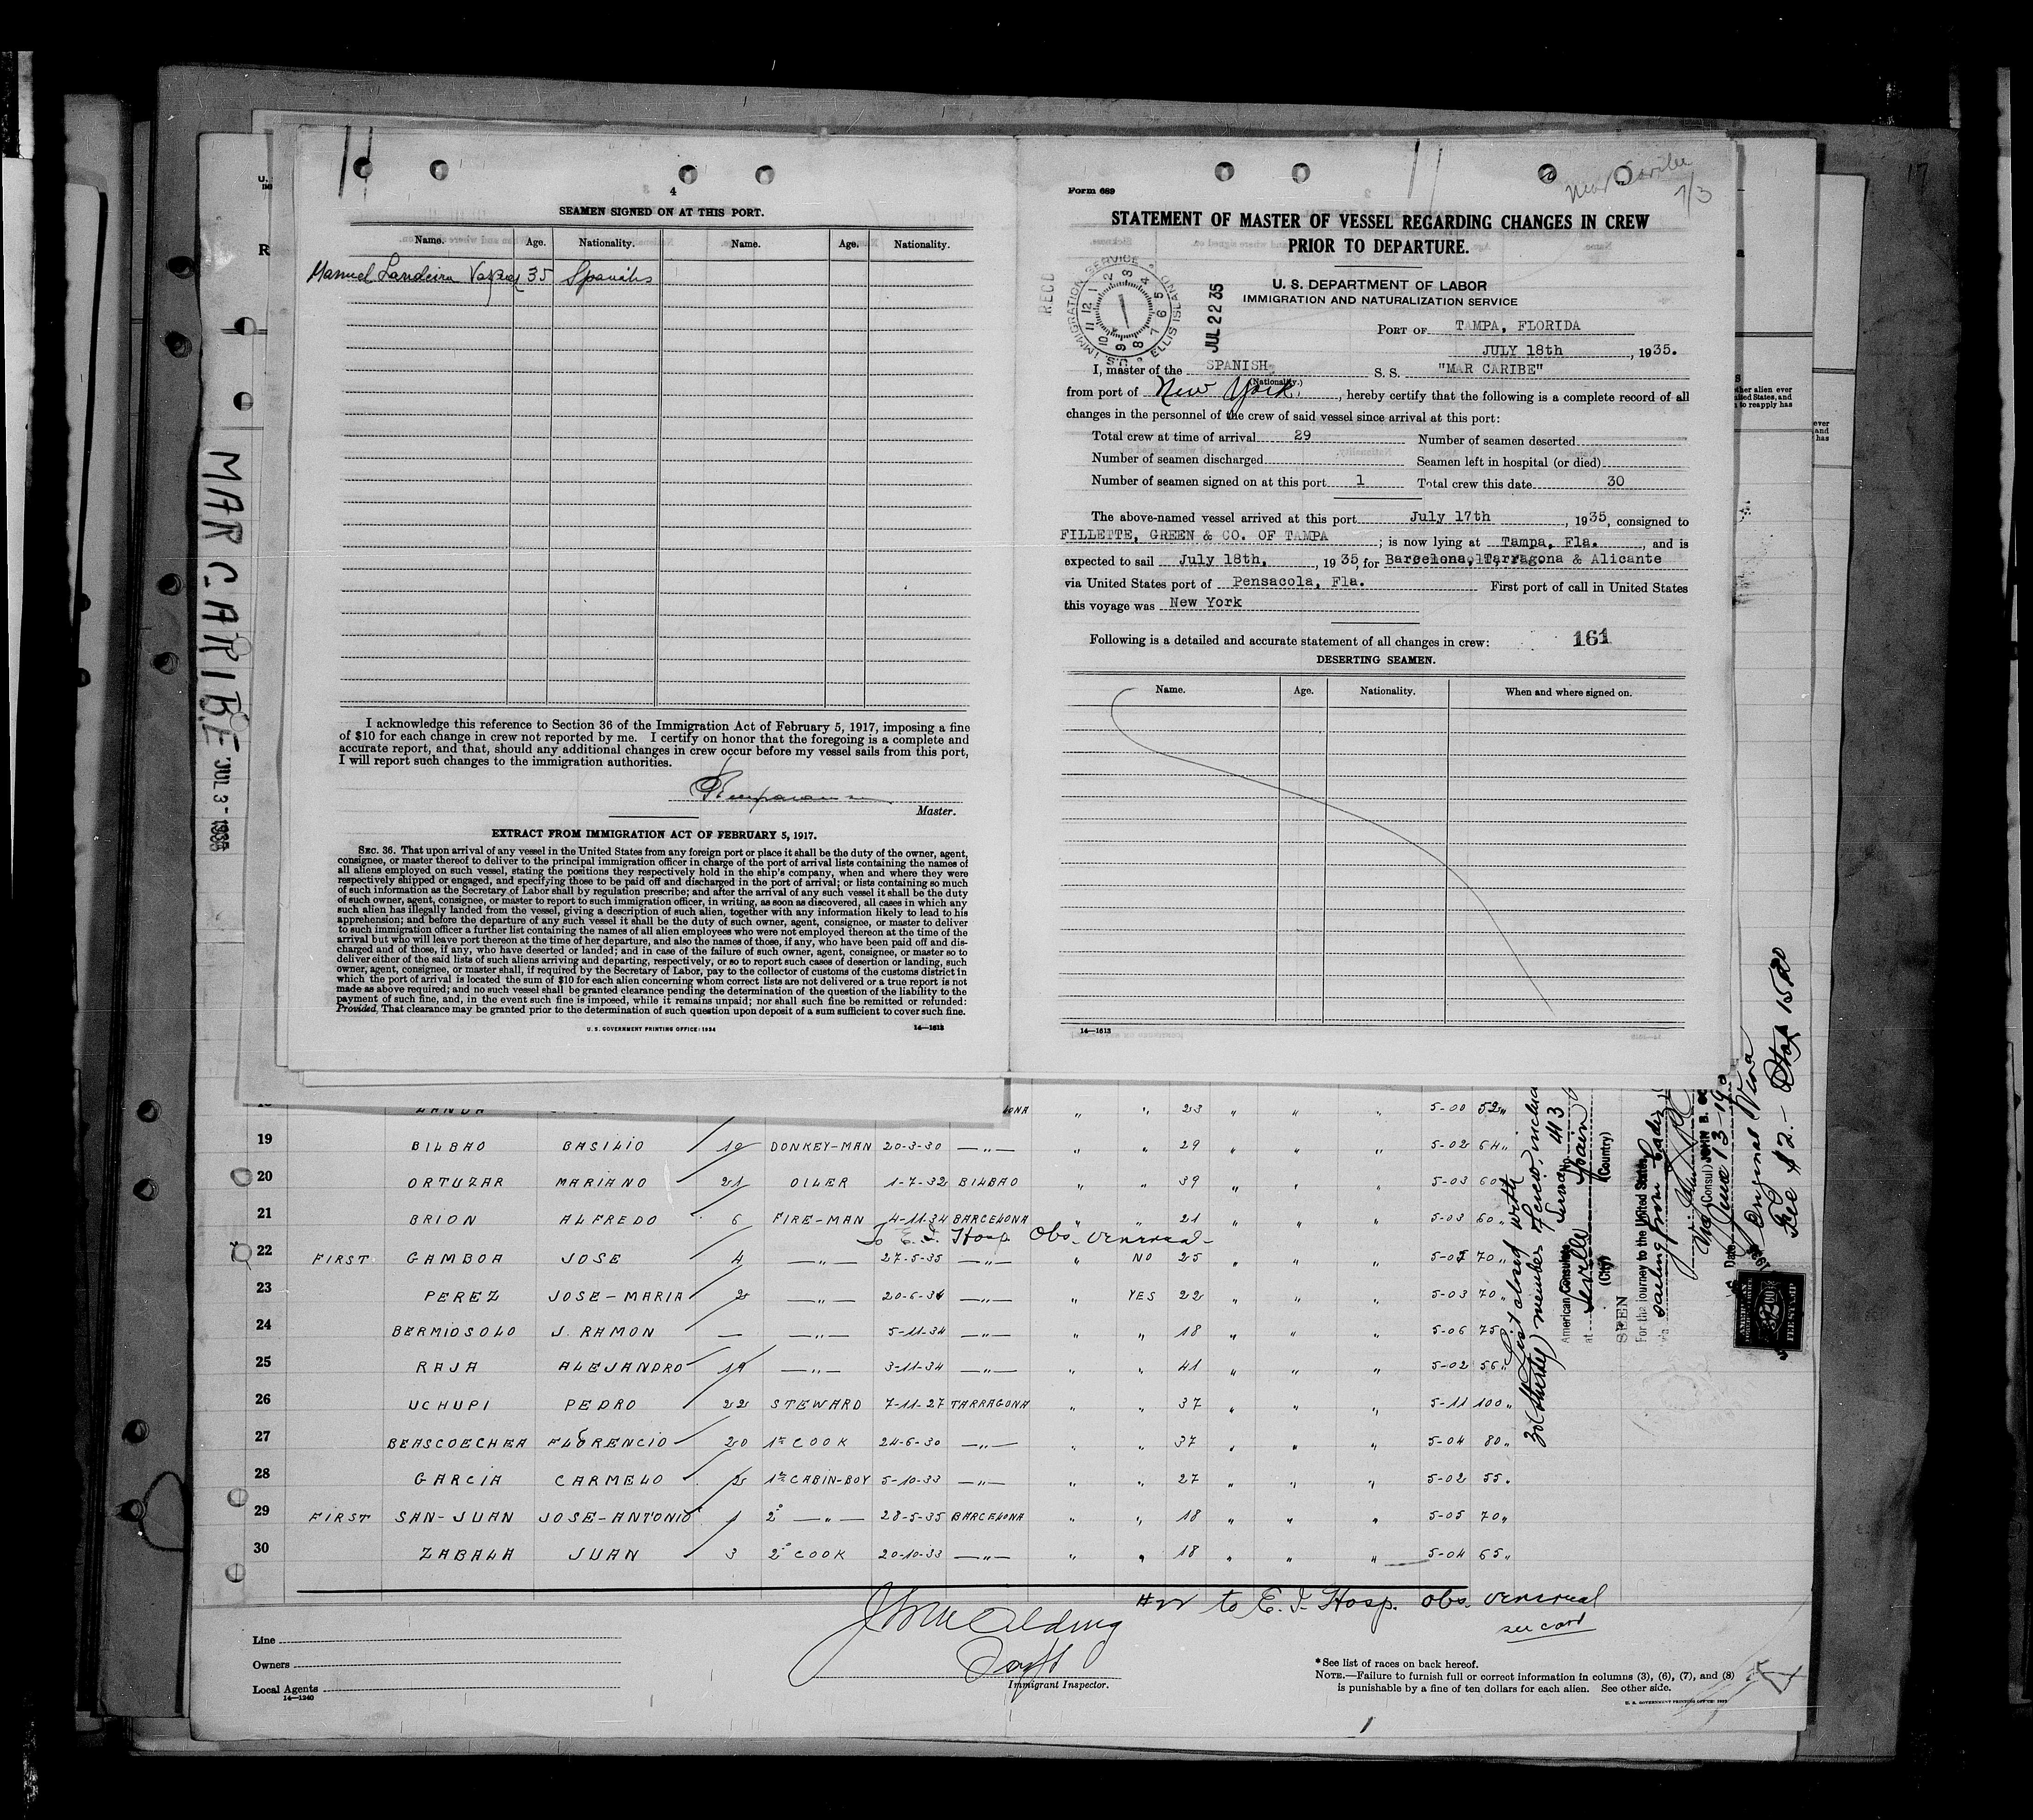 4
SEAMEN SIGNED ON AT THIS PORT.
Name. Age. Nationality. Name. Age. Nationality.
Manuel Landeira Vazquez 35 Spanish
I acknowledge this reference to Section 36 of the Immigration Act of February 5, 1917, imposing a fine
of $10 for each change in crew not reported by me. I certify on honor that the foregoing is a complete and
accurate report, and that, should any additional changes in crew occur before my vessel sails from this port,
I will report such changes to the immigration authorities.
Master.
EXTRACT FROM IMMIGRATION ACT OF FEBRUARY 5, 1917.
SEC. 36. That upon arrival of any vessel in the United States from any foreign port or place it shall be the duty of the owner, agent,
consignee, or master thereof to deliver to the principal immigration officer in charge of the port of arrival lists containing the names of
all aliens employed on such vessel, stating the positions they respectively hold in the ship's company, when and where they were
respectively shipped or engaged, and specifying those to be paid off and discharged in the port of arrival; or lists containing so much
of such information as the Secretary of Labor shall by regulation prescribe; and after the arrival of any such vessel it shall be the duty
of such owner, agent, consignee, or master to report to such immigration officer, in writing, as soon as discovered, all cases in which any
such alien has illegally landed from the vessel, giving a description of such alien, together with any information likely to lead to his
apprehension; and before the departure of any such vessel it shall be the duty of such owner, agent, consignee, or master to deliver
to such immigration officer a further list containing the names of all alien employees who were not employed thereon at the time of the
arrival but who will leave port thereon at the time of her departure, and also the names of those, if any, who have been paid off and dis-
charged and of those, if any, who have deserted or landed; and in case of the failure of such owner, agent, consignee, or master so to
deliver either of the said lists of such aliens arriving and departing, respectively, or so to report such cases of desertion or landing, such
owner, agent, consignee, or master shall, if required by the Secretary of Labor, pay to the collector of customs of the customs district in
which the port of arrival is located the sum of $10 for each alien concerning whom correct lists are not delivered or a true report is not
made as above required; and no such vessel shall be granted clearance pending the determination of the question of the liability to the
payment of such fine, and, in the event such fine is imposed, while it remains unpaid; nor shall such fine be remitted or refunded:
Provided, That clearance may be granted prior to the determination of such question upon deposit of a sum sufficient to cover such fine.
U. S. GOVERNMENT PRINTING OFFICE: 1934 14—1613
Form 689
1/3
STATEMENT OF MASTER OF VESSEL REGARDING CHANGES IN CREW
PRIOR TO DEPARTURE.
U. S. DEPARTMENT OF LABOR
IMMIGRATION AND NATURALIZATION SERVICE
RECD
U.S. IMMIGRATION SERVICE ELLIS ISLAND
JUL 22 35
PORT OF TAMPA, FLORIDA
JULY 18th, 1935.
I, master of the SPANISH S. S. "MAR CARIBE"
(Nationality.)
from port of New York, hereby certify that the following is a complete record of all
changes in the personnel of the crew of said vessel since arrival at this port:
Total crew at time of arrival 29 Number of seamen deserted
Number of seamen discharged Seamen left in hospital (or died)
Number of seamen signed on at this port 1 Total crew this date 30
The above-named vessel arrived at this port July 17th, 1935, consigned to
FILLETTE, GREEN & CO. OF TAMPA; is now lying at Tampa, Fla., and is
expected to sail July 18th, 1935, for Barcelona, Tarragona & Alicante
via United States port of Pensacola, Fla. First port of call in United States
this voyage was New York
Following is a detailed and accurate statement of all changes in crew: 161
DESERTING SEAMEN.
Name. Age. Nationality. When and where signed on.
14—1613
MAR CARIBE JUL 3- 1935
23 " " " 5-00 52"
19 BILBAO BASILIO 10 DONKEY-MAN 20-3-30 —"— " " 29 " " " 5-02 64"
20 ORTUZAR MARIANO 21 OILER 1-7-32 BILBAO " " 39 " " " 5-03 60"
21 BRION ALFREDO 6 FIRE-MAN 4-11-34 BARCELONA " " 21 " " " 5-03 60"
To E. I. Hosp. Obs. venereal
22 FIRST GAMBOA JOSE 4 —"— 27-5-35 —"— " NO 25 " " " 5-05 70"
23 PEREZ JOSE-MARIA 2 —"— 20-6-34 —"— " YES 22 " " " 5-03 70"
24 BERMIOSOLO J. RAMON — —"— 5-11-34 —"— " " 18 " " " 5-06 75"
25 RAJA ALEJANDRO 19 —"— 3-11-34 —"— " " 41 " " " 5-02 56"
26 UCHUPI PEDRO 22 STEWARD 7-11-27 TARRAGONA " " 37 " " " 5-11 100"
27 BEASCOECHEA FLORENCIO 20 1er COOK 24-6-30 —"— " " 37 " " " 5-04 80"
28 GARCIA CARMELO 2 1er CABIN-BOY 5-10-33 —"— " " 27 " " " 5-02 55"
29 FIRST SAN-JUAN JOSE-ANTONIO 1 2º —"— 28-5-35 BARCELONA " " 18 " " " 5-05 70"
30 ZABALA JUAN 3 2º COOK 20-10-33 —"— " " 18 " " " 5-04 65"
#22 to E. I. Hosp. obs. venereal
see card
Line
Owners
Local Agents
14—1240
Immigrant Inspector.
*See list of races on back hereof.
NOTE.—Failure to furnish full or correct information in columns (3), (6), (7), and (8)
is punishable by a fine of ten dollars for each alien. See other side.
List closed with
30 (thirty) members of crew, inclu
American Consulate Service No. 413
at Seville Spain
(City) (Country)
SEEN
For the journey to the United States
via sailing from Cadiz
Vice Consul
Date June 13-19
Original Visa
Fee $2.-